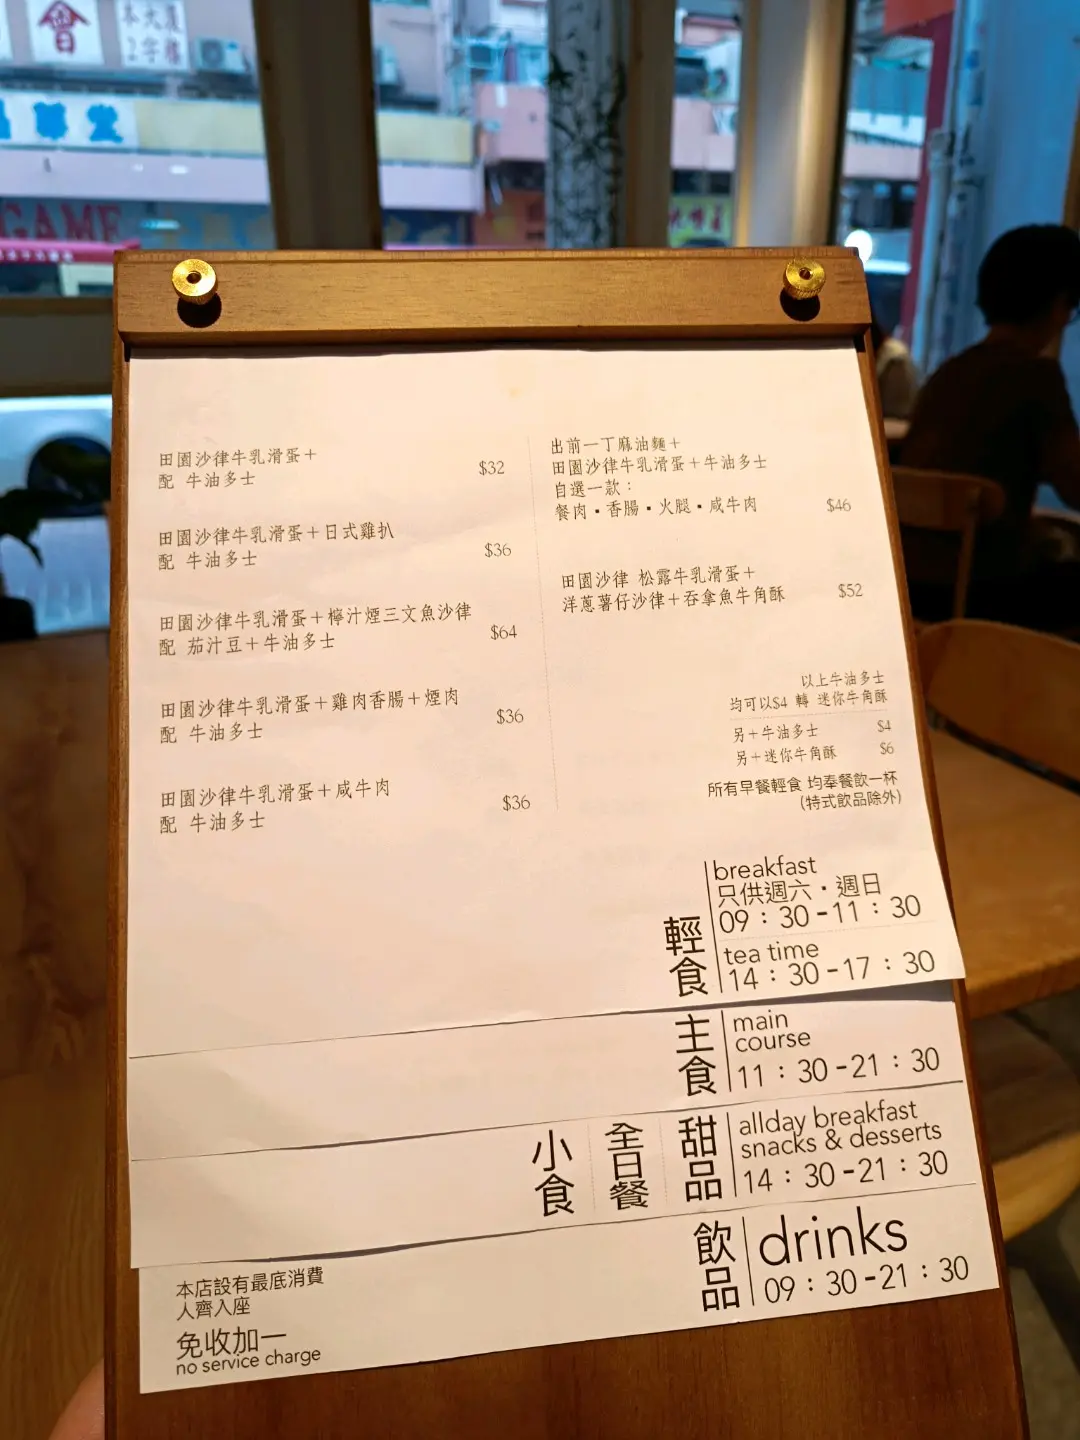 會
GAME
田園沙律牛乳滑蛋＋
配 牛油多士
$32
田園沙律牛乳滑蛋＋日式雞扒
配 牛油多士
$36
田園沙律牛乳滑蛋＋檸汁煙三文魚沙律
配 茄汁豆＋牛油多士
$64
田園沙律牛乳滑蛋＋雞肉香腸＋煙肉
配 牛油多士
$36
田園沙律牛乳滑蛋＋咸牛肉
配 牛油多士
$36
出前一丁麻油麵＋
田園沙律牛乳滑蛋＋牛油多士
自選一款：
餐肉・香腸・火腿・咸牛肉
$46
田園沙律 松露牛乳滑蛋＋
洋蔥薯仔沙律＋吞拿魚牛角酥
$52
以上牛油多士
均可以$4 轉 迷你牛角酥
另＋牛油多士 $4
另＋迷你牛角酥 $6
所有早餐輕食 均奉餐飲一杯
(特式飲品除外)
輕食
breakfast
只供週六・週日
09：30-11：30
tea time
14：30-17：30
主食
main
course
11：30-21：30
小食
全日餐
甜品
allday breakfast
snacks & desserts
14：30-21：30
飲品
drinks
09：30-21：30
本店設有最底消費
人齊入座
免收加一
no service charge